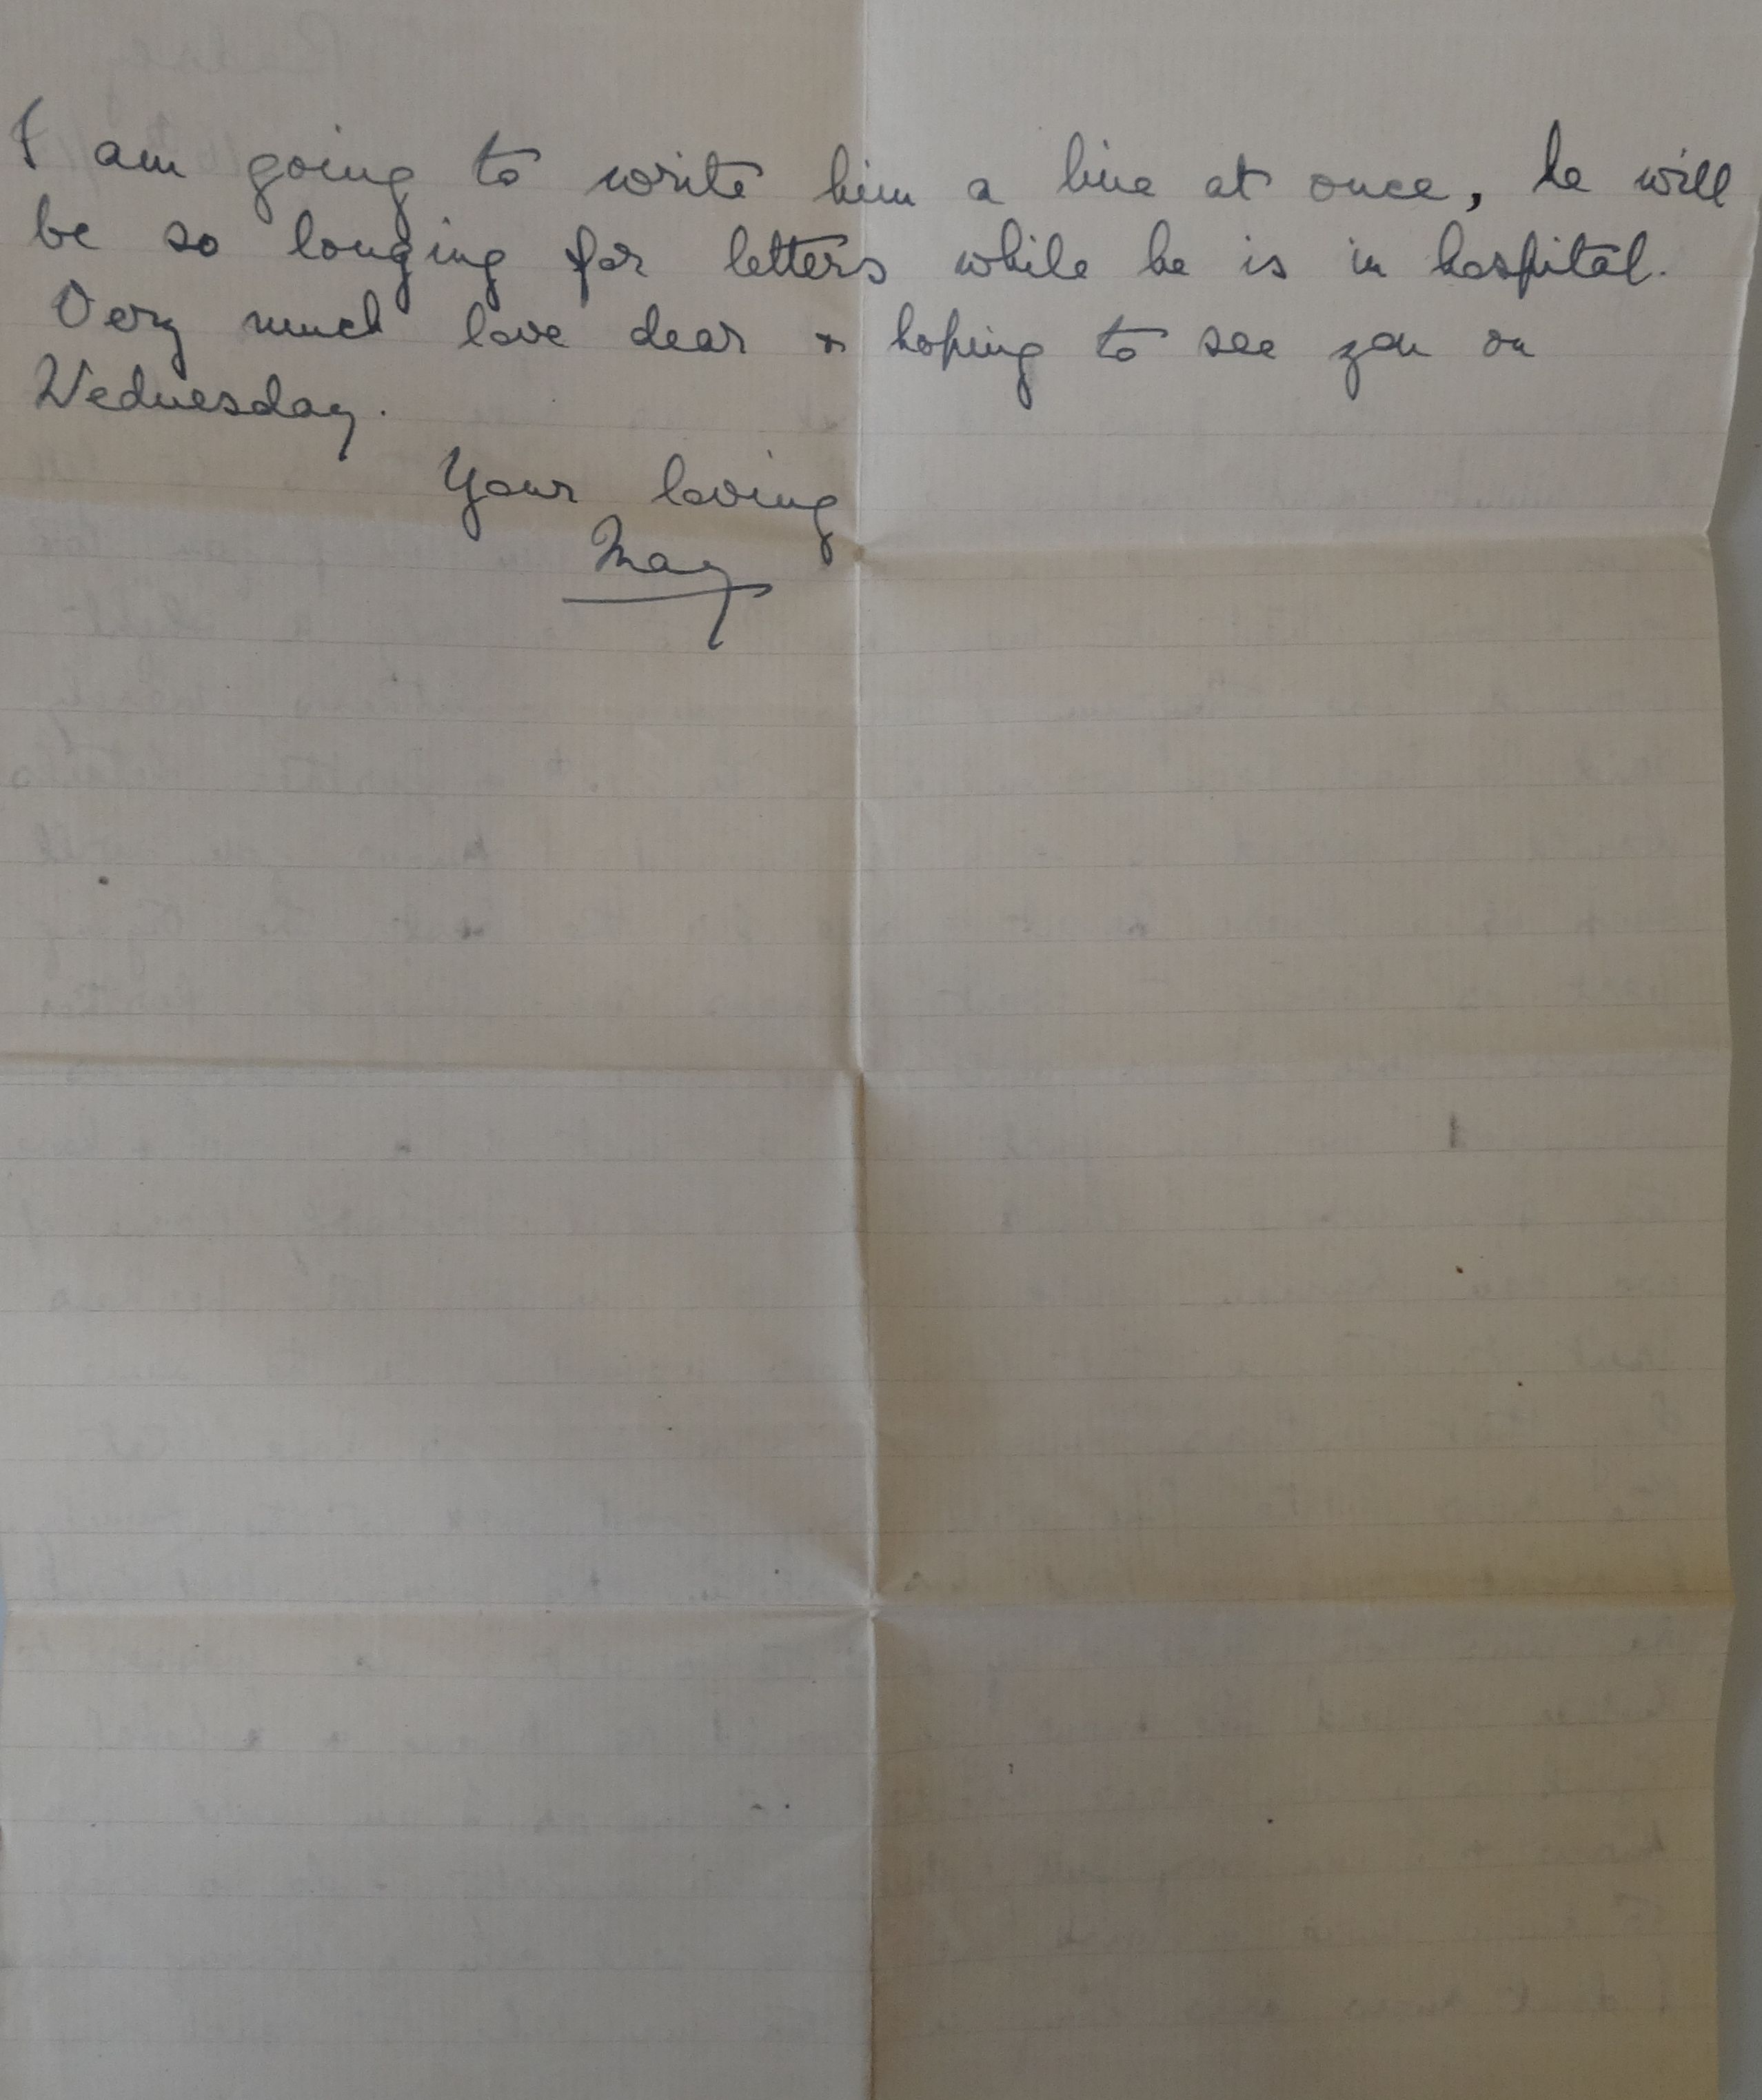 I am going to write him a line at once, he will
be so longing for letters while he is in hospital.
Very much love dear & hoping to see you on
Wednesday.
Your loving
May